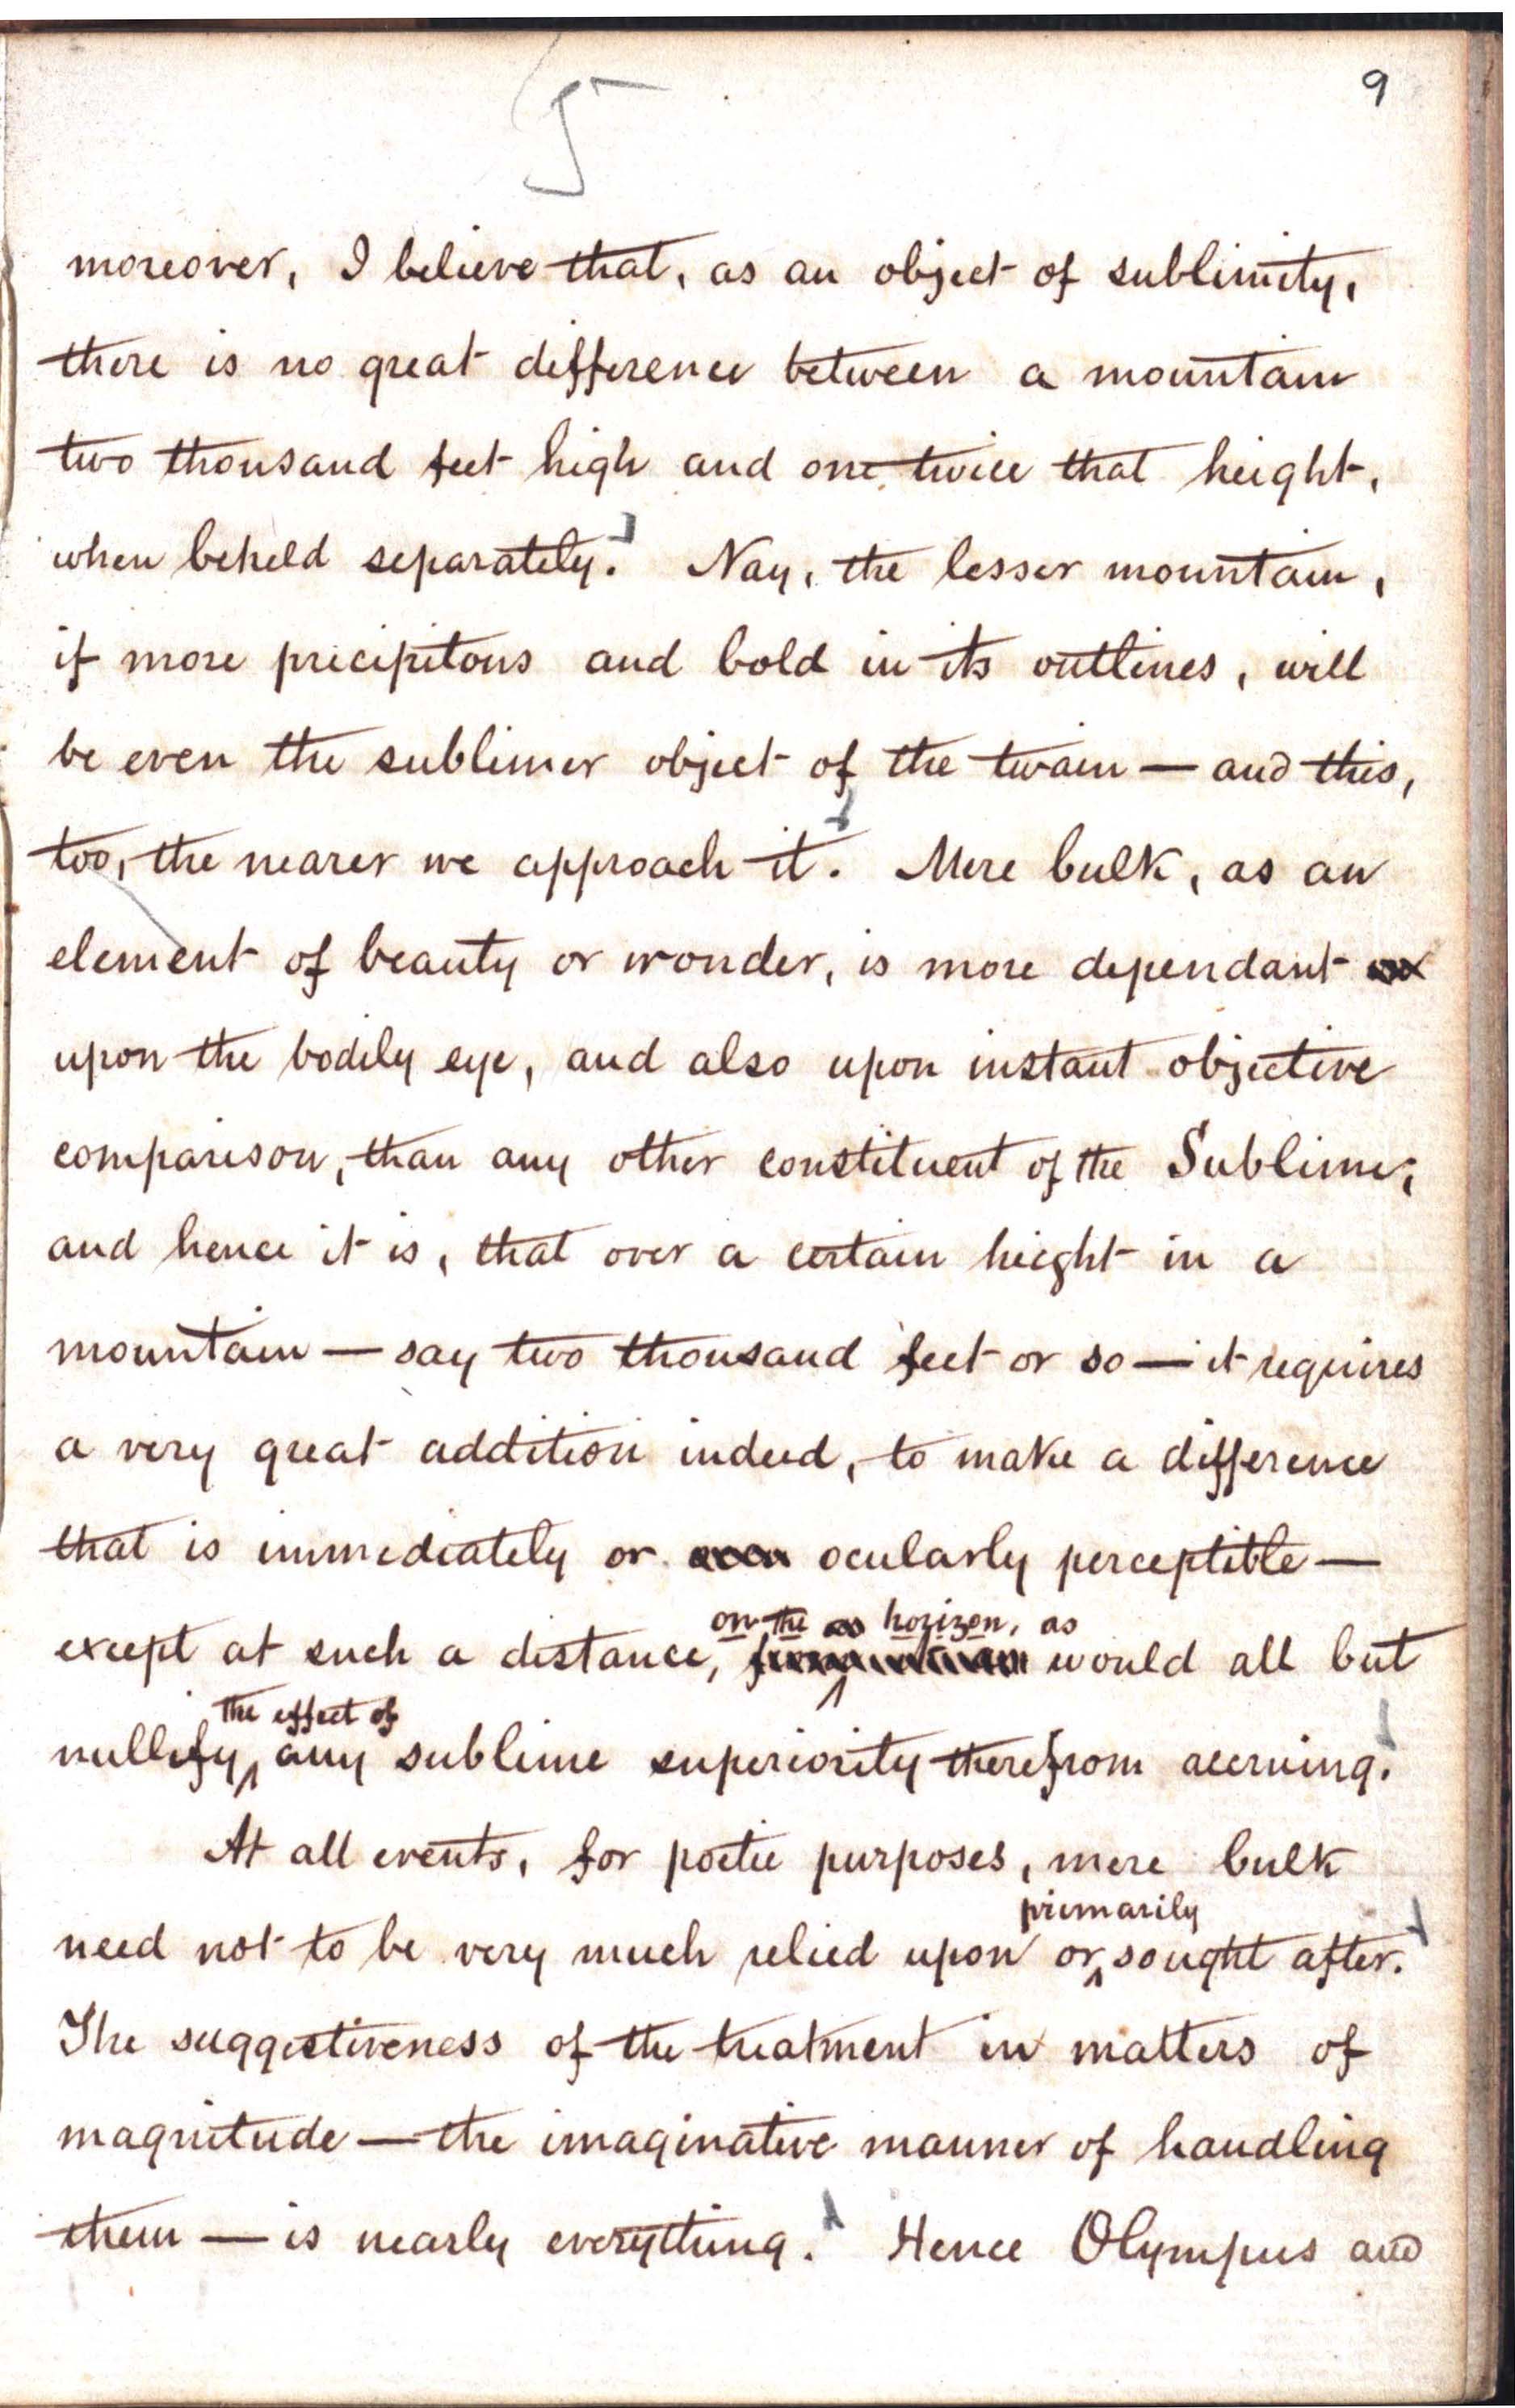 5
9
moreover, I believe that, as an object of sublimity,
there is no great difference between a mountain
two thousand feet high and one twice that height,
when beheld separately. Nay, the lesser mountain,
if more precipitous and bold in its outlines, will
be even the sublimer object of the twain — and this,
too, the nearer we approach it. Mere bulk, as an
element of beauty or wonder, is more dependant
upon the bodily eye, and also upon instant objective
comparison, than any other constituent of the Sublime;
and hence it is, that over a certain hieght in a
mountain — say two thousand feet or so — it requires
a very great addition indeed, to make a difference
that is immediately or even ocularly perceptible —
on the as horizon, as
except at such a distance, would all but
the effect of
nullify any sublime superiority therefrom accruing.
At all events, for poetic purposes, mere bulk
primarily
need not to be very much relied upon or sought after.
The suggestiveness of the treatment in matters of
magnitude — the imaginative manner of handling
them — is nearly everything. Hence Olympus and